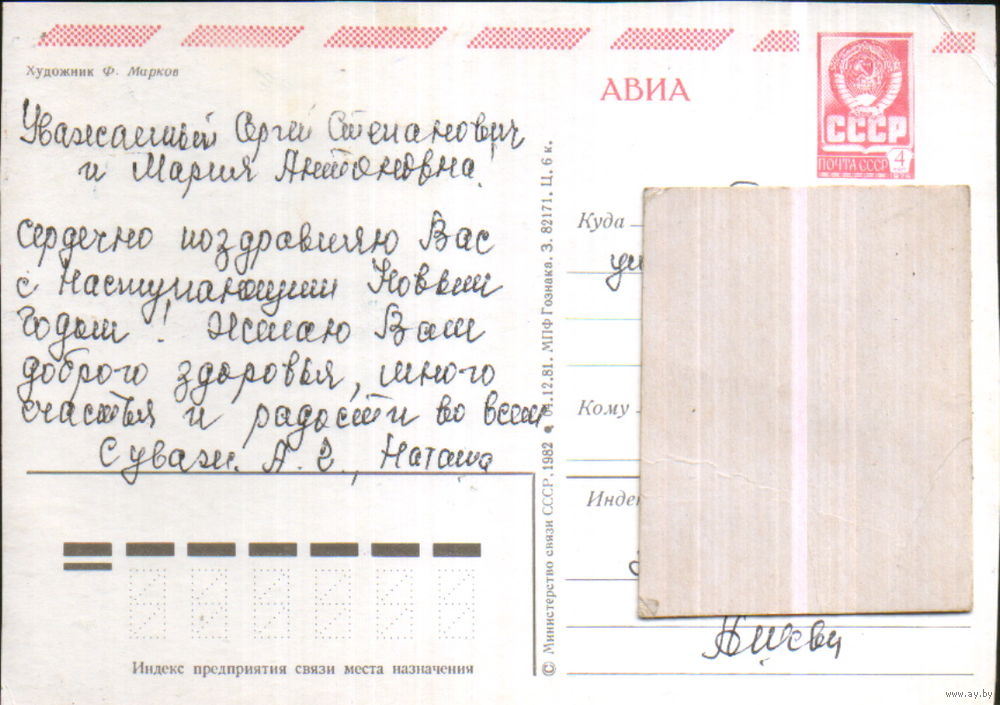 Художник Ф. Марков
АВИА
СССР
ПОЧТА СССР 4
Уважаемый Сергей Степанович
и Мария Антоновна.
Сердечно поздравляю Вас
с Наступающим Новым
Годом! Желаю Вам
доброго здоровья, много
счастья и радости во всем
С уваж. А. Е., Наташа
Куда
Кому
Индекс предприятия связи места назначения
© Министерство связи СССР. 1982 ● 04.12.81. МПФ Гознака. З. 82171. Ц. 6 к.
www.ay.by